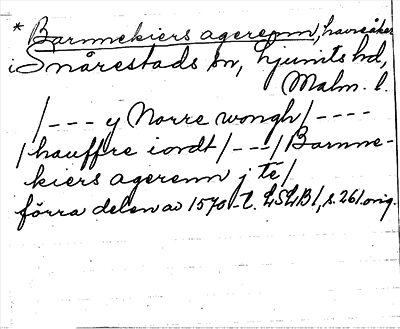 * Barnnekiers agerenn, havreåker
i Snårestads sn, Ljunits hd,
Malm. l.
/--- y Norre wongh/----
/hauffre iordt/---/Barnne-
kiers agerenn j tē/
förra delen av 1570-t. LSLB1, s. 261. orig.